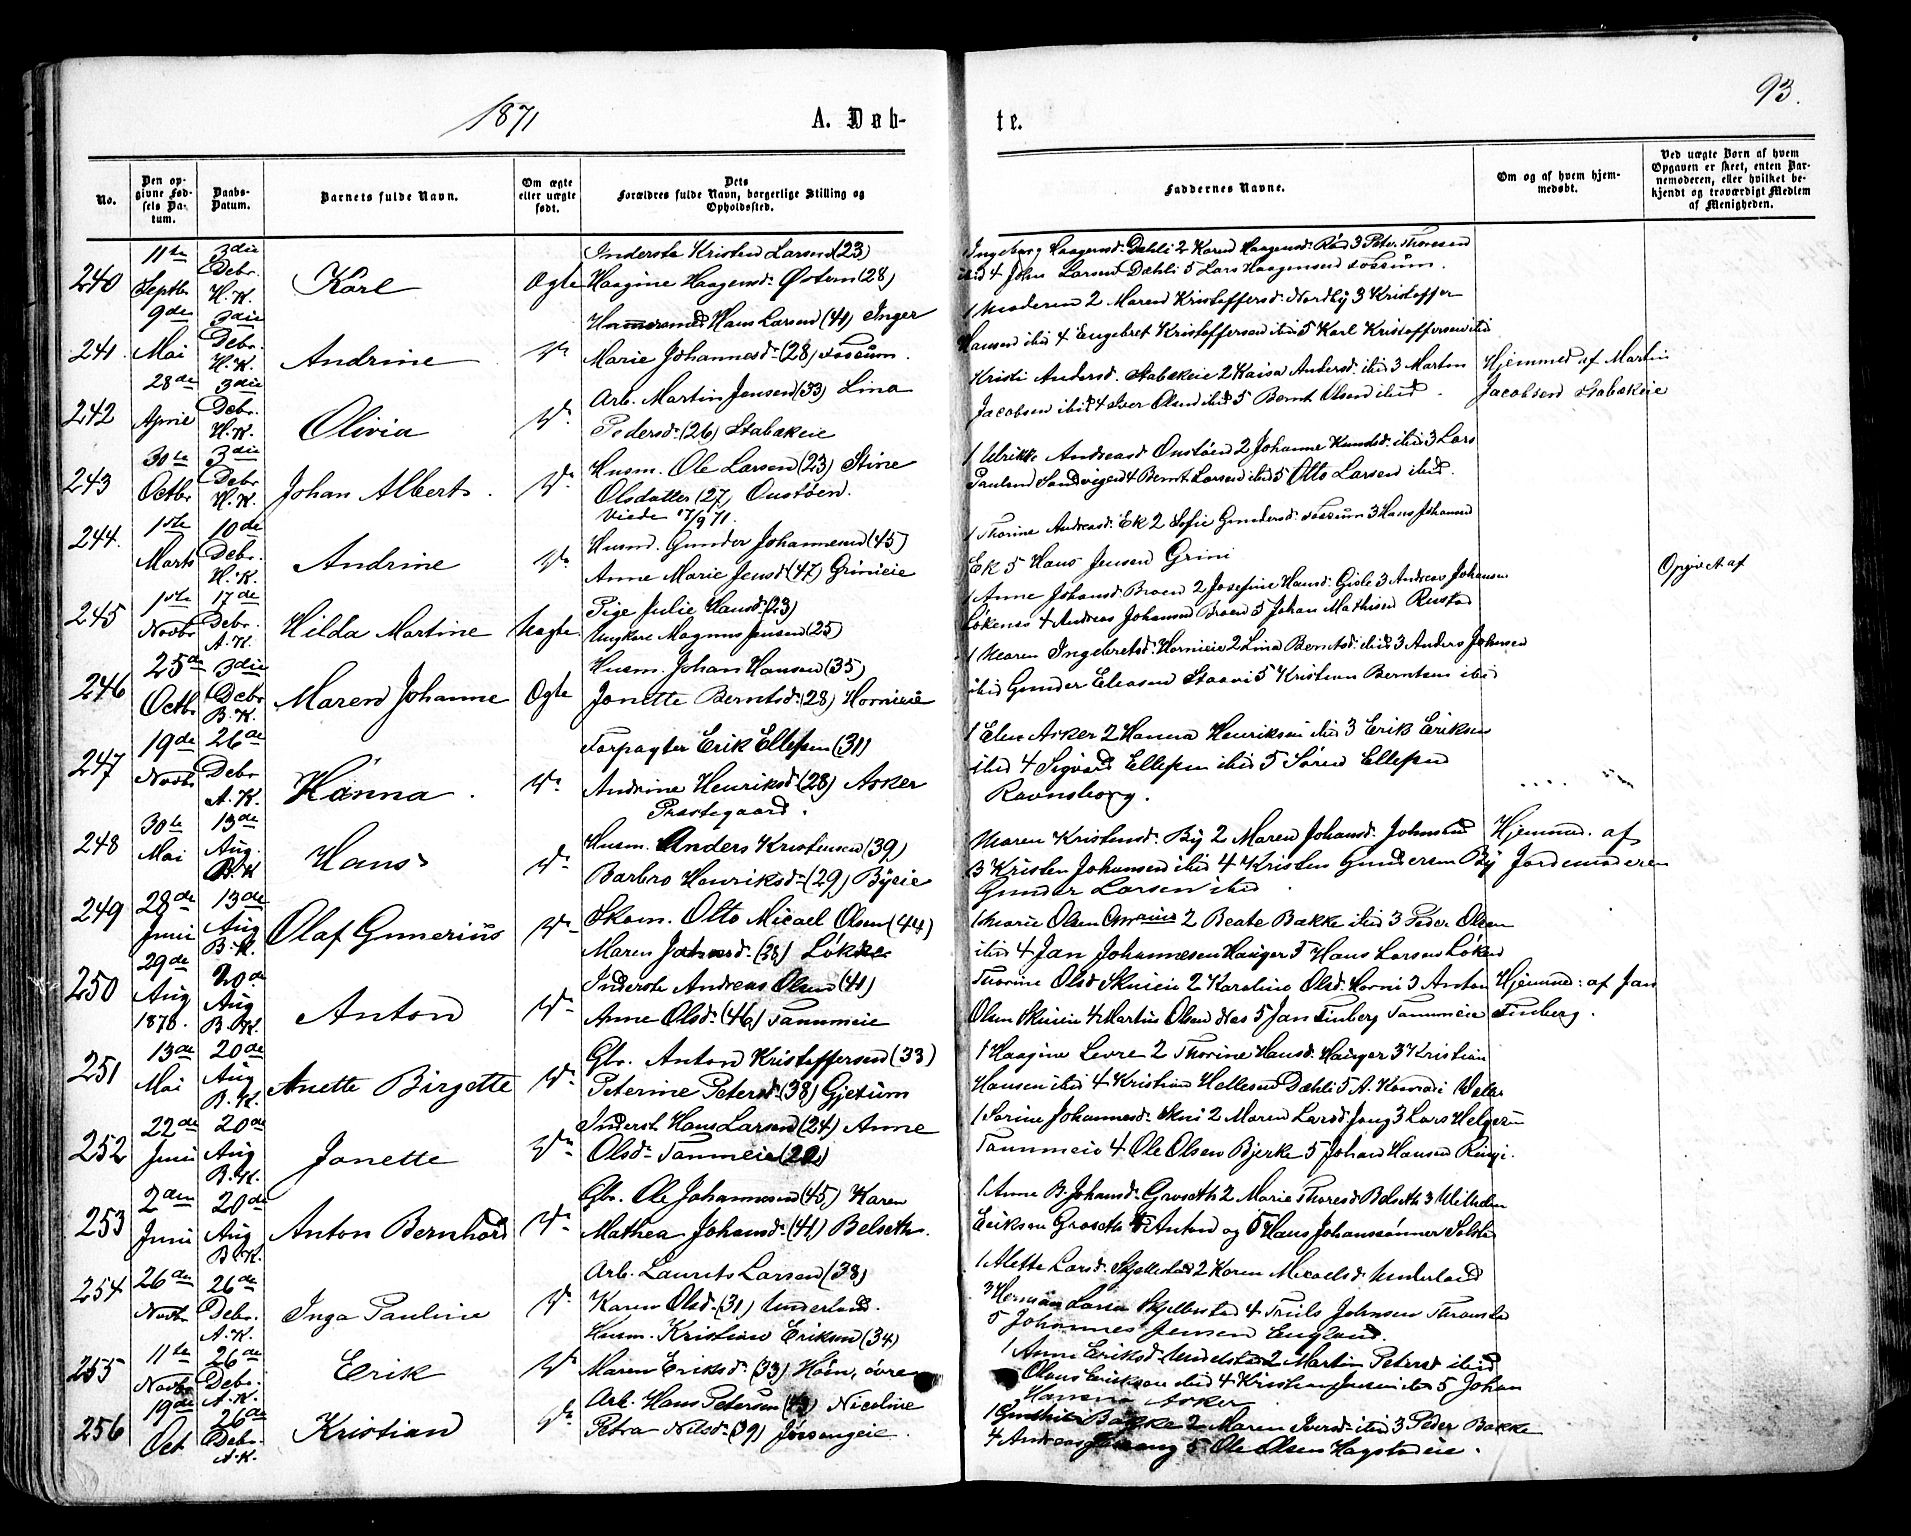 1871
A. Døb-
te.
93.
No.
Den op-
givne Fød-
sels Da-
tum.
Daabs-
Datum.
Barnets fulde Navn.
Om ægte
eller uægte
født.
Dets
Forældres fulde Navn, borgerlige Stilling og
Opholdssted.
Faddernes Navne.
Om og af hvem hjem-
medøbt.
Ved uægte Børn af hvem
Opgaven er skeet, enten Bar-
nemoderen, eller hvilket be-
kjendt og troværdigt Medlem
af Menigheden.
240
11te
Septbr
3die
Debr.
H. K.
Karl
Ægte
Inderste Kristen Larsen (23)
Haagine Haagensd. Østern (28)
Ingeborg Haagensd. Dæhli 2 Karen Haagensd. Røn 3 Peter Thoresen
ibid 4 Johs Larsen Dæhli 5 Lars Haagensen Fossum.
241.
9de
Mai
3die
Debr.
H. K.
Andrine
Do
Hans Larsen (41) Inger
Marie Johannesd. (28) Fossum.
1 Moderen 2 Maren Kristoffersd. Nordby 3 Kristoffer
Hansen ibid 4 Engebret Kristoffersen ibid 5 Karl Kristoffersen ibid
242
28de
April
3die
Debr.
H. K.
Olivia
Do.
Arb. Martin Jensen (33) Lina
Pedersd. (26) Stabækeie
Kristi Andersd. Stabækeie 2 Kaisa Andersd. ibid 3 Marten
Jacobsen ibid 4 Iver Olsen ibid 5 Bernt Olsen ibid.
Hjemmed af Martin
Jacobsen Stabækeie
243
30te
Octbr
3die
Debr
H. K.
Johan Albert
Do.
Husm. Ole Larsen (23) Stine
Olsdatter (27) Oustøen.
Viede 17/9 71.
1 Ulrikke Andreasd Oustøen 2 Johanne Knudsd. ibid 3 Lars
Paulsen Sandvigen 4 Bernt Larsen ibid 5 Otto Larsen ibid.
244.
1ste
Marts
10de
Debr.
H. K.
Andrine
Do
Husm. Gunder Johannesen (45)
Anne Marie Jensd. (47) Grinieie
1 Thorine Andreasd. Ek 2 Sofie Gundersd. Fossum 3 Hans Johansen
Ek 5 Hans Jensen Grini
245
1ste
Novbr
17de
Debr.
A. K.
Hilda Martine
Uægte
Pige Julie Hansd. (23)
Ungkarl Magnus Jensen (25)
1 Anne Johansd. Braen 2 Josefine Hansd. Gisle 3 Andreas Johansen
Løkenes 4 Andreas Johansen Braen 5 Johan Mathisen Rustad
Opgivet af
246
25de
Octbr
3die
Debr
B. K.
Maren Johanne
Ægte
Husm. Johan Hansen (35)
Jonette Berntsd. (28) Hornieie
1 Maren Ingebretsd. Hornieie 2 Lina Berntsd. ibid 3 Anders Johansen
ibid Gunder Eliasen Staavi 5 Kristian Berntsen ibid
247
19de
Novbr
26de
Debr
A. K.
Hanna.
Do.
Forpagter Erik Ellefsen (31)
Andrine Henriksd. (28) Asker
Præstegaard.
1 Elen Asker 2 Hanna Henriksen ibid 3 Erik Eriksen
ibid 4 Sigvard Ellefsen ibid 5 Søren Ellefsen
Ravnsborg.
248
30te
Mai
13de
Aug.
B. K
Hans
Do.
Husm. Anders Kristensen (39)
Barbro Henriksd. (29) Byeie
Maren Kristensd. By 2 Maren Johansd. Johnsrud
3 Kristen Johansen ibid 4 Kristen Gundersen By
Gunder Larsen ibid.
Hjemmed. af
Jordemoderen
249
28de
Juni
13de
Aug
B. K.
Olaf Gunerius
Do.
Skom. Otto Micael Olsen (44)
Maren (38) Løkke
1 Marie Olsen 2 Beate Bakke ibid 3 Peder Olsen
ibid 4 Jan Johannesen Hauger 5 Hans Larsen Løken
250
29de
Aug
1870.
20de
Aug
B. K.
Anton
Do.
Inderste Andreas Olsen (41)
Anne Olsd. (46) Tanumeie
Thorine Olsd Skuieie 2 Karoline Olsd. Horni 3 Anton
Olsen Skuieie 4 Martin Olsen Nes 5 Jan Finberg Tanumeie
Hjemmed. af Jan
Finberg.
251
13de
Mai
20de
Aug
B. K.
Anette Birgette
Do.
Gbr. Anton Kristoffersen (33)
Peterine Petersd. (38) Gjetum
1 Haagine Levre 2 Thorine Hansd. Hauger 3 Kristian
Hansen ibid 4 Kristian Hellesen Dæhli 5 A. Konradi
252
22de
Juni
20de
Aug
B. K.
Jonette
Do
Inderst Hans Larsen (24) Anne
Olsd. Tanumeie (22)
1 Sorine Johannesd. Skui 2 Maren Larsd. Jong 3 Lars Helgesen
Tanumeie 4 Ole Olsen Bjerke 5 Johan Hansen Ringi.
253
2den
Juni
20de
Aug
B. K.
Anton Bernhard
Do.
Gbr. Ole Johannesen (45) Karen
Mathea Johansd. (41) Belseth.
1 Anne B. Johansd. Groseth 2 Marie Thoresd Belseth 3 Wilhelm
Eriksen Groseth 4 Anton og 5 Hans Johanssønner
254
26de
Novbr
26de
Debr.
A. K.
Inga Pauline
Do.
Arb. Laurits Larsen (38)
Karen Olsd. (31) Underland.
1 Mette Larsd. Skjellestad 2 Karen Micaelsd. Underland
3 Herman Larsen Skjellestad 4 Truls Johnsen
5 Johannes Jensen England.
255
11te
Novbr
26de
Debr.
A. K.
Erik
Do
Husm. Kristian Eriksen (34)
Maren Eriksd. (33) Høn, øvre
1 Anne Eriksd. 2 Martin Petersd ibid
Olaus Eriksen ibid 4 Kristian Jensen ibid 5 Johan
Hansen Asker
256
19de
Oct
26de
Debr.
A. K.
Kristian
Do.
Arb. Hans Petersen Nicoline
Petra Nilsd. (39)
1 Bakke 2 Maren Iversd. ibid 3 Peder Bakke
4 Andreas 5 Ole Olsen Hogstadeie.